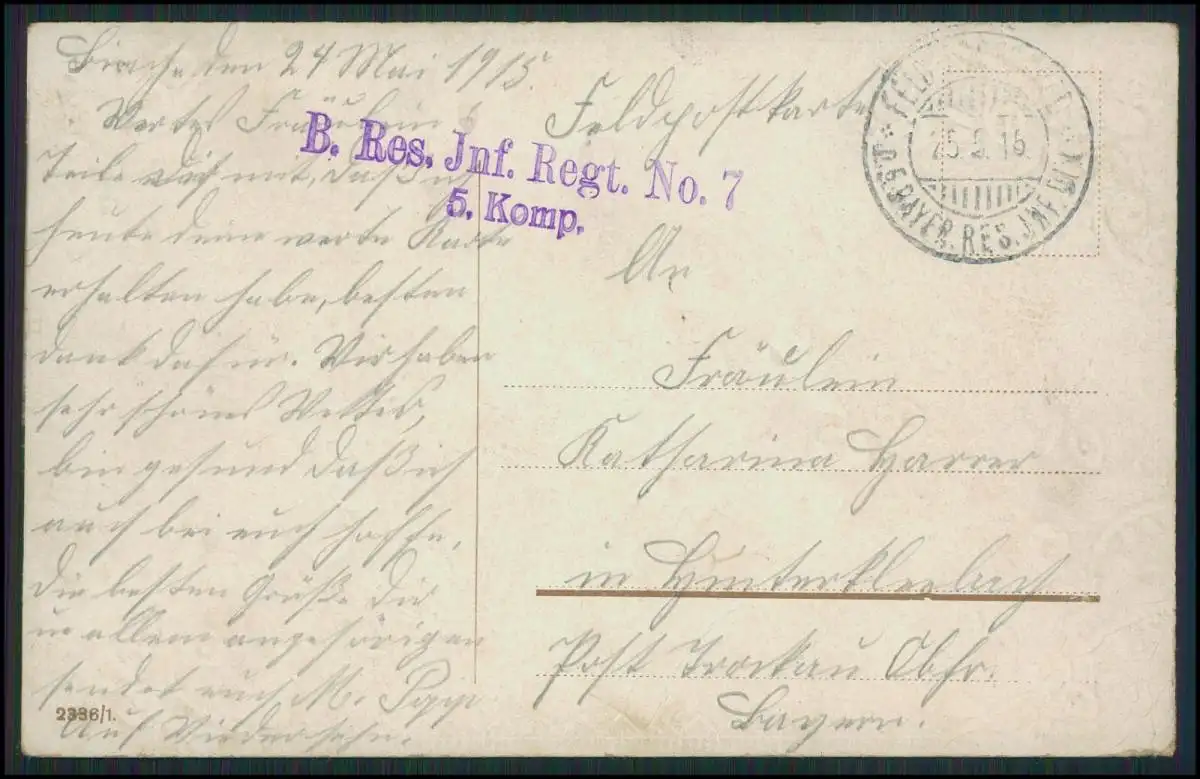 den 24 Mai 1915.
Wertes Fräulein
Teile dir mit, daß ich
heute deine werte Karte
erhalten habe, besten
dank dafür. Wir haben
sehr schönes Wetter,
bin gesund daß ich
auch bei euch hoffe,
die besten Grüße dir
u allem angehörigen
sendet euch M. Popp
Auf Wiedersehn.
2336/1.
B. Res. Jnf. Regt. No. 7
5. Komp.
Feldpostkarte
25.5.15.
D. 5. BAYER. RES. JNF. DIV.
An
Fräulein
Katharina Harrer
in Hinterkleebach
Post Trockau Obfr.
Bayern.